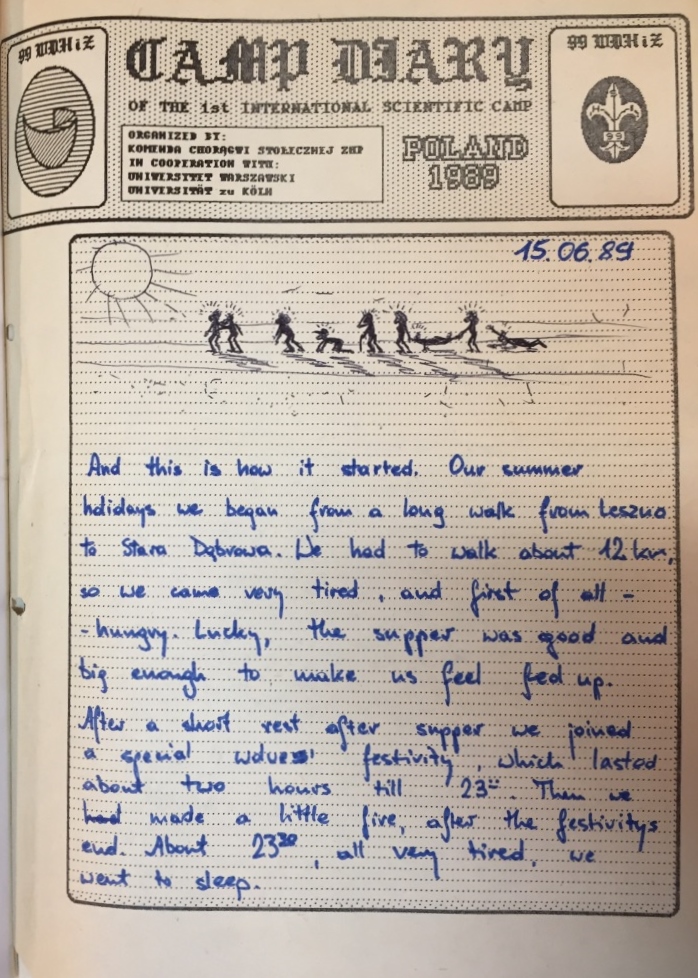 99 WDHiZ
CAMP DIARY
99 WDHiZ
OF THE 1st INTERNATIONAL SCIENTIFIC CAMP
ORGANIZED BY:
KOMENDA CHORĄGWI STOŁECZNEJ ZHP
IN COOPERATION WITH:
UNIWERSITET WARSZAWSKI
UNIVERSITÄT zu KÖLN
POLAND
1989
99
15.06.89
And this is how it started. Our summer
holidays we began from a long walk from Leszno
to Stara Dąbrowa. We had to walk about 12 km,
so we came very tired, and first of all -
- hungry. Lucky, the supper was good and
big enough to make us feel fed up.
After a short rest after supper we joined
a special wolves' festivity, which lasted
about two hours till 23⁰⁰. Then we
had made a little fire, after the festivitys
end. About 23³⁰, all very tired, we
went to sleep.